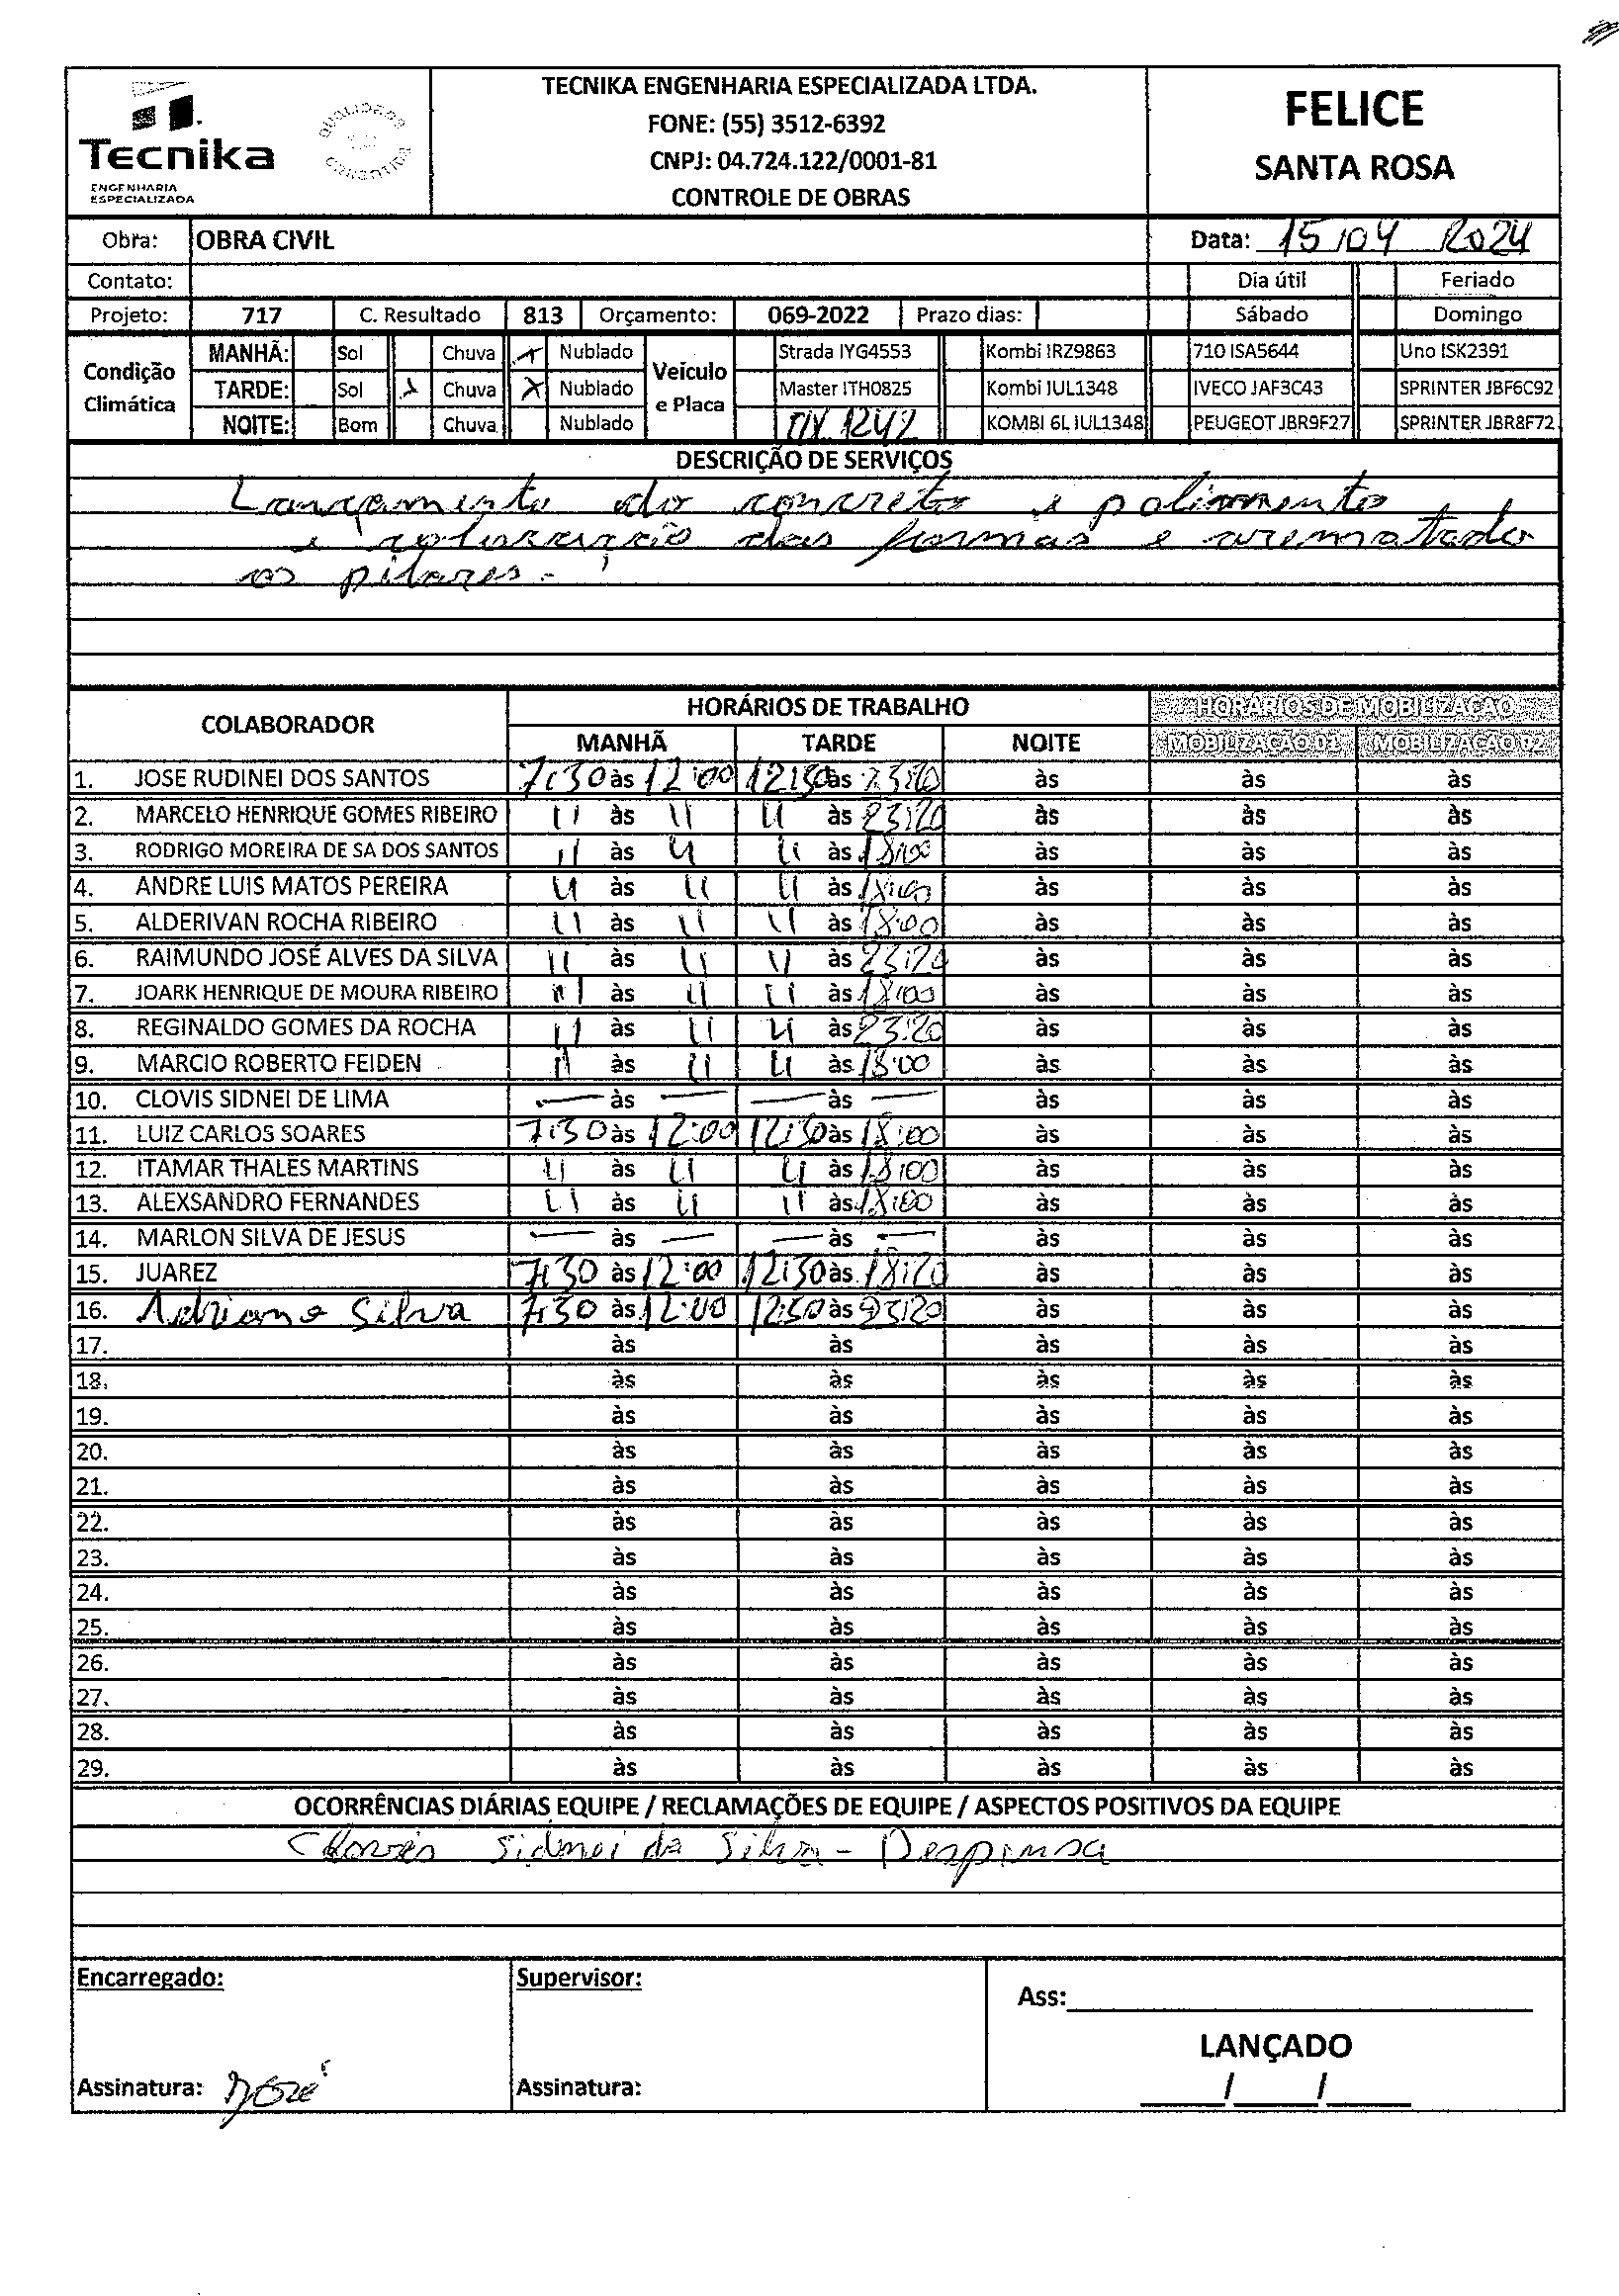 TECNIKA ENGENHARIA ESPECIALIZADA LTDA.
FONE: (55) 3512-6392
CNPJ: 04.724.122/0001-81
CONTROLE DE OBRAS
Tecnika
ENGENHARIA
ESPECIALIZADA
FELICE
SANTA ROSA
Obra: OBRA CIVIL Data: 15/04 2024
Contato: Dia útil Feriado
Projeto: 717 C. Resultado 813 Orçamento: 069-2022 Prazo dias: Sábado Domingo
Condição Climática
MANHÃ: Sol Chuva X Nublado Veículo e Placa Strada IYG4553 Kombi IRZ9863 710 ISA5644 Uno ISK2391
TARDE: Sol X Chuva X Nublado Master ITH0825 Kombi IUL1348 IVECO JAF3C43 SPRINTER JBF6C92
NOITE: Bom Chuva Nublado 1242 KOMBI 6L IUL1348 PEUGEOT JBR9F27 SPRINTER JBR8F72
DESCRIÇÃO DE SERVIÇOS
Lançamento do concreto e polimento
e colocação das formas e arematado
os pilares.
COLABORADOR HORÁRIOS DE TRABALHO HORÁRIOS DE MOBILIZAÇÃO
MANHÃ TARDE NOITE MOBILIZAÇÃO 01 MOBILIZAÇÃO 02
1. JOSE RUDINEI DOS SANTOS 7:30 às 12:00 12:30 às 23:20 às às às
2. MARCELO HENRIQUE GOMES RIBEIRO 11 às 11 11 às 23:20 às às às
3. RODRIGO MOREIRA DE SA DOS SANTOS 11 às 11 11 às 18:00 às às às
4. ANDRE LUIS MATOS PEREIRA 11 às 11 11 às 18:00 às às às
5. ALDERIVAN ROCHA RIBEIRO 11 às 11 11 às 18:00 às às às
6. RAIMUNDO JOSÉ ALVES DA SILVA 11 às 11 11 às 23:20 às às às
7. JOARK HENRIQUE DE MOURA RIBEIRO 11 às 11 11 às 18:00 às às às
8. REGINALDO GOMES DA ROCHA 11 às 11 11 às 23:20 às às às
9. MARCIO ROBERTO FEIDEN 11 às 11 11 às 18:00 às às às
10. CLOVIS SIDNEI DE LIMA — às — — às — às às às
11. LUIZ CARLOS SOARES 7:30 às 12:00 12:30 às 18:00 às às às
12. ITAMAR THALES MARTINS 11 às 11 11 às 18:00 às às às
13. ALEXSANDRO FERNANDES 11 às 11 11 às 18:00 às às às
14. MARLON SILVA DE JESUS — às — — às — às às às
15. JUAREZ 7:30 às 12:00 12:30 às 18:20 às às às
16. Adriano Silva 7:30 às 12:00 12:30 às 23:20 às às às
17. às às às às às
18. às às às às às
19. às às às às às
20. às às às às às
21. às às às às às
22. às às às às às
23. às às às às às
24. às às às às às
25. às às às às às
26. às às às às às
27. às às às às às
28. às às às às às
29. às às às às às
OCORRÊNCIAS DIÁRIAS EQUIPE / RECLAMAÇÕES DE EQUIPE / ASPECTOS POSITIVOS DA EQUIPE
Sidnei da Silva - Despensa
Encarregado: Supervisor: Ass:
LANÇADO
Assinatura: José Assinatura: / /